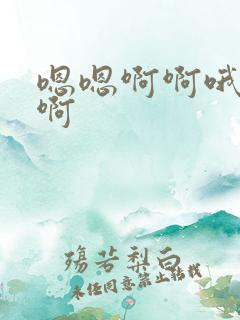 嗯嗯啊啊哦
啊
殇若梨白
未经同意禁止转载